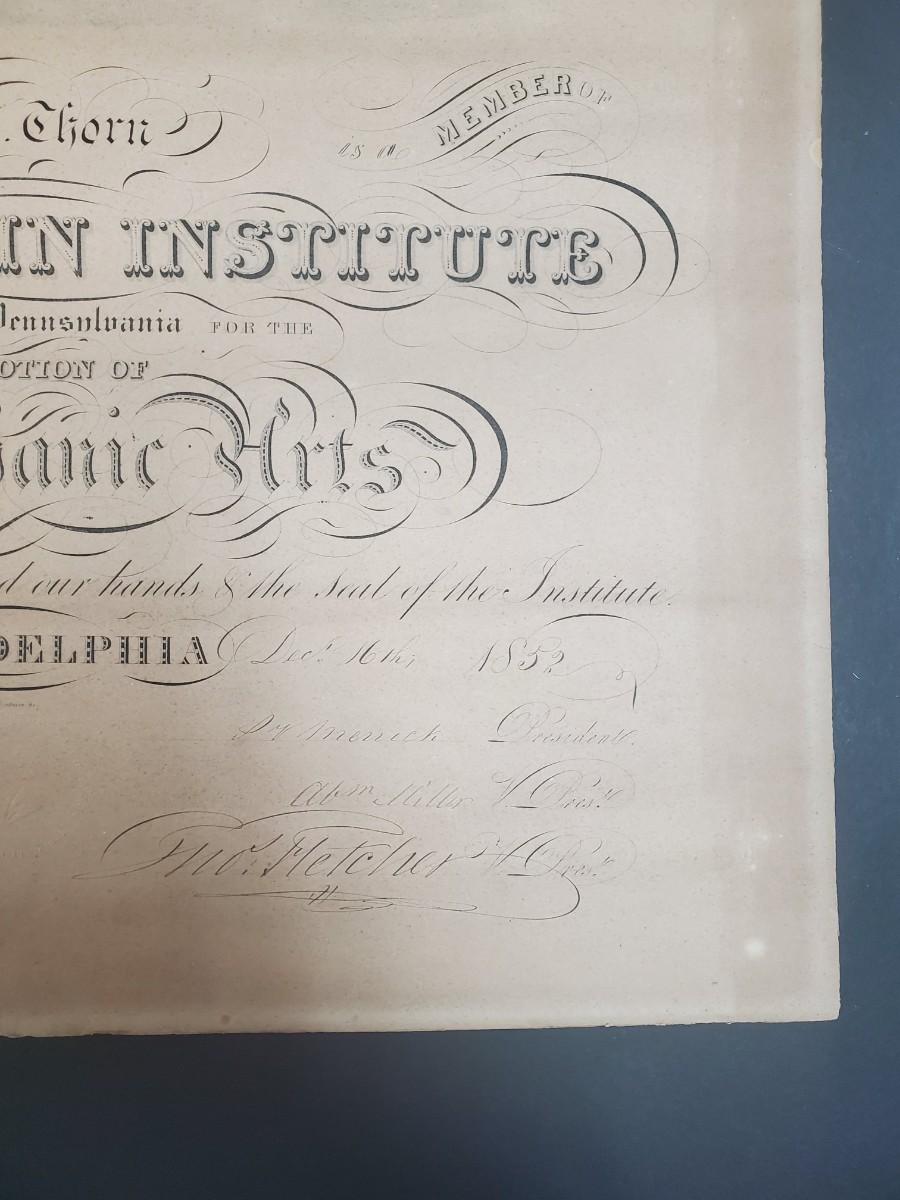 . Thorn is a MEMBER OF
IN INSTITUTE
Pennsylvania FOR THE
OTION OF
anic Arts
d our hands & the Seal of the Institute.
DELPHIA Decr. 16th, 1852
S V Merrick President.
Abm Miller V. Prest.
Tho.s Fletcher V. Prest.